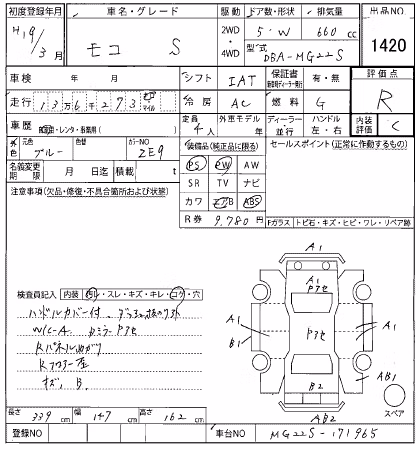 初度登録年月 車名・グレード 駆動 ドア数・形状 排気量 出品NO
H19年 3月 モコ S 2WD・4WD 5・W 660 cc 1420
型式 DBA-MG22S
車検 年 月 シフト IAT 保証書 有・無 評価点
走行 13万6千273 km マイル 冷房 AC 燃料 G R
車歴 自家・レンタ・事業用( ) 定員 4人 外車モデル 年 ディーラー・並行 ハンドル 左・右 内装評価 C
外色 元色 ブルー 色替 カラーNO ZE9 装備品(純正品に限る) セールスポイント(正常に作動するもの)
名義変更期限 月 日迄 積載 t PS PW AW
注意事項(欠品・修復・不具合箇所および状態) SR TV ナビ
カワ エアB ABS
R券 9,780円 Fガラス トビ石・キズ・ヒビ・ワレ・リペア跡
A1
Pアセ
検査員記入 内装 汚レ・スレ・キズ・キレ・コゲ・穴
ハンドルカバー付
W/C-A
Rパネル曲がり
Rフロアー歪
キズ, B
A1
B1
Pアセ
A1
A1
AB1
B2
AB2
スペア
長さ 339 cm 幅 147 cm 高さ 162 cm
登録NO 車台NO MG22S-171965